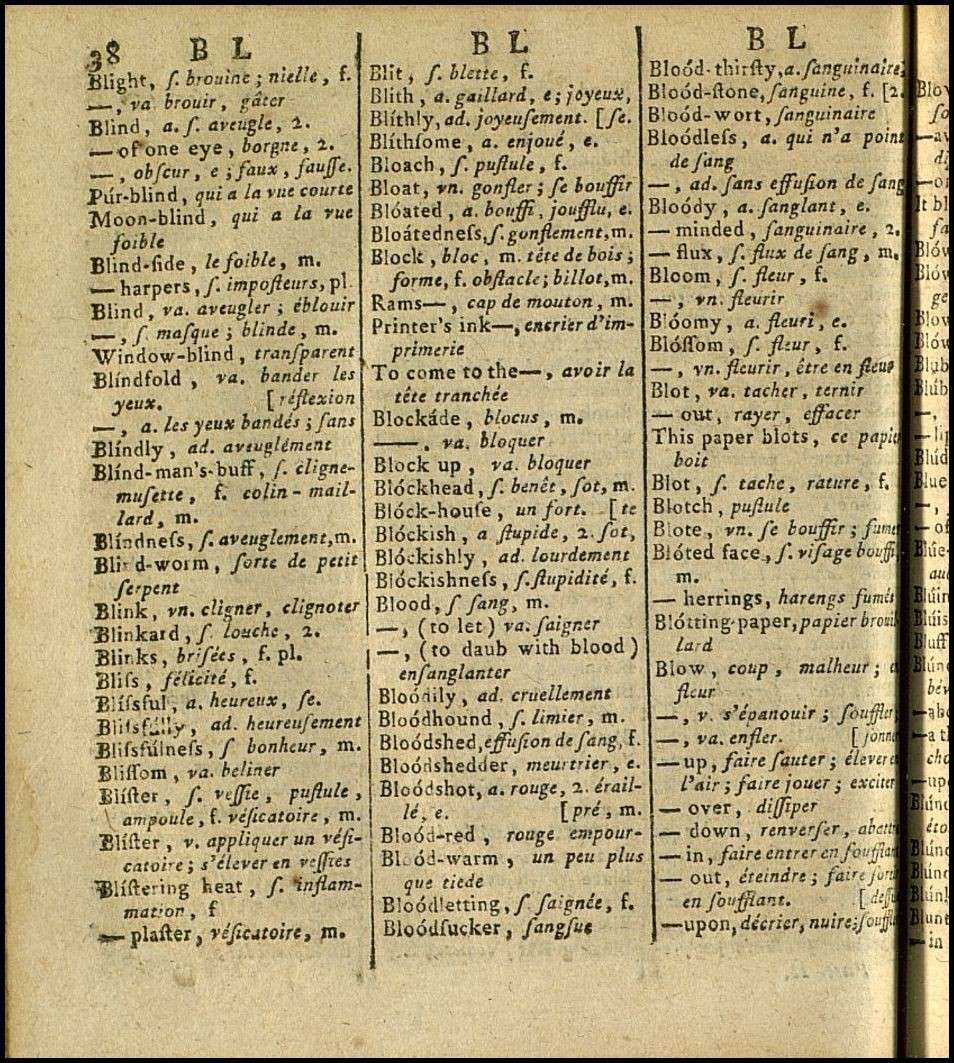 38 B L
Blight, ſ. brouine; nielle, f.
—, va. brouir, gâter
Blind, a. ſ. aveugle, 2.
— of one eye, borgne, 2.
—, obſcur, e; faux, fauſſe.
Púr-blind, qui a la vue courte
Moon-blind, qui a la vue
foible
Blind-ſide, le foible, m.
— harpers, ſ. impoſteurs, pl
Blind, va. aveugler; éblouir
—, ſ. maſque; blinde, m.
Window-blind, tranſparent
Blíndfold, va. bander les
yeux. [réflexion
—, a. les yeux bandés; ſans
Blíndly, ad. aveuglément
Blínd-man's-buff, ſ. cligne-
muſette, f. colin-mail-
lard, m.
Blíndneſs, ſ. aveuglement, m.
Blind-worm, ſorte de petit
ſerpent
Blink, vn. cligner, clignoter
Blinkard, ſ. louche, 2.
Blinks, briſées, f. pl.
Bliſs, félicité, f.
Blíſsful, a. heureux, ſe.
Bliſsfully, ad. heureuſement
Bliſsfúlneſs, ſ bonheur, m.
Bliſſom, va. beliner
Blíſter, ſ. veſſie, puſtule,
ampoule, f. véſicatoire, m.
Blíſter, v. appliquer un véſi-
catoire; s'élever en veſſies
Blíſtering heat, ſ. inflam-
mation, f
— plaſter, véſicatoire, m.
B L
Blit, ſ. blette, f.
Blith, a. gaillard, e; joyeux,
Blíthly, ad. joyeuſement. [ſe.
Blíthſome, a. enjoué, e.
Bloach, ſ. puſtule, f.
Bloat, vn. gonfler; ſe bouffir
Blóated, a. bouffi, joufflu, e.
Bloátedneſs, ſ. gonflement, m.
Block, bloc, m. tête de bois;
forme, f. obſtacle; billot, m.
Rams—, cap de mouton, m.
Printer's ink—, encrier d'im-
primerie
To come to the—, avoir la
tête tranchée
Blockáde, blocus, m.
——. va. bloquer
Block up, va. bloquer
Blóckhead, ſ. benêt, ſot, m.
Blóck-houſe, un fort. [te
Blóckish, a ſtupide, 2. ſot,
Blóckishly, ad. lourdement
Blóckishneſs, ſ. ſtupidité, f.
Blood, ſ ſang, m.
—, (to let) va. ſaigner
—, (to daub with blood)
enſanglanter
Bloódily, ad. cruellement
Bloódhound, ſ. limier, m.
Bloódshed, effuſion de ſang, f.
Bloódshedder, meurtrier, e.
Bloódshot, a. rouge, 2. érail-
lé, e. [pré, m.
Bloód-red, rouge empour-
Bloód-warm, un peu plus
que tiede
Bloódletting, ſ ſaignée, f.
Bloódſucker, ſangſue
B L
Bloód-thirſty, a. ſanguinaire,
Bloód-ſtone, ſanguine, f. [2.
Bloód-wort, ſanguinaire
Bloódleſs, a. qui n'a point
de ſang
—, ad. ſans effuſion de ſang
Bloódy, a. ſanglant, e.
— minded, ſanguinaire, 2.
— flux, ſ. flux de ſang, m.
Bloom, ſ. fleur, f.
—, vn. fleurir
Blóomy, a. fleuri, e.
Blóſſom, ſ. fleur, f.
—, vn. fleurir, être en fleur
Blot, va. tacher, ternir
— out, rayer, effacer
This paper blots, ce papier
boit
Blot, ſ. tache, rature, f.
Blotch, puſtule
Blote, vn. ſe bouffir; fumer
Blóted face, ſ. viſage bouffi,
m.
— herrings, harengs fumés
Blótting-paper, papier brouil
lard
Blow, coup, malheur;
fleur
—, v. s'épanouir; ſouffler,
—, va. enfler. [ſonner
— up, faire ſauter; élever en
l'air; faire jouer; exciter
— over, diſſiper
— down, renverſer, abattre
— in, faire entrer en ſoufflant
— out, éteindre; faire ſortir
en ſoufflant. [deſſus
— upon, décrier, nuire; ſouffl